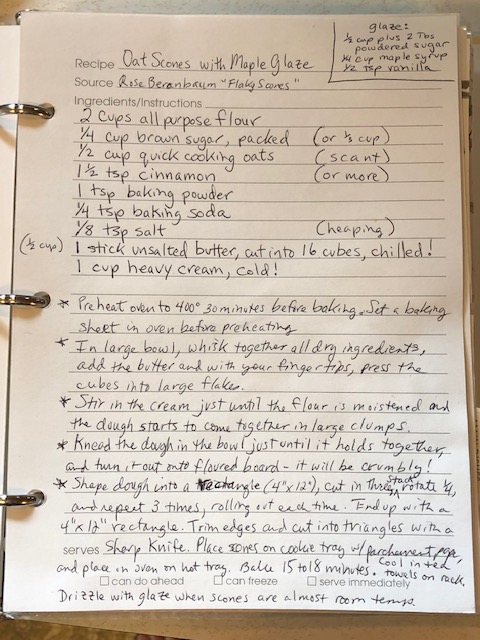 glaze:
1/2 cup plus 2 Tbs
powdered sugar
1/4 cup maple syrup
1/2 tsp vanilla
Recipe Oat Scones with Maple Glaze
Source Rose Beranbaum "Flaky Scones"
Ingredients/Instructions
2 cups all purpose flour
1/4 cup brown sugar, packed (or 1/3 cup)
1/2 cup quick cooking oats (scant)
1 1/2 tsp cinnamon (or more)
1 tsp baking powder
1/4 tsp baking soda
1/8 tsp salt (heaping)
(1/2 cup) 1 stick unsalted butter, cut into 16 cubes, chilled!
1 cup heavy cream, cold!
* Preheat oven to 400° 30 minutes before baking. Set a baking
sheet in oven before preheating
* In large bowl, whisk together all dry ingredients,
add the butter and with your fingertips, press the
cubes into large flakes.
* Stir in the cream just until the flour is moistened and
the dough starts to come together in large clumps.
* Knead the dough in the bowl just until it holds together,
and turn it out onto floured board - it will be crumbly!
* Shape dough into a rectangle (4"x12"), cut in thirds, stack, rotate 1/4,
and repeat 3 times, rolling out each time. End up with a
4"x12" rectangle. Trim edges and cut into triangles with a
serves Sharp Knife. Place scones on cookie tray w/ parchment paper
and place in oven on hot tray. Bake 15 to 18 minutes. Cool in ted
towels on rack.
can do ahead can freeze serve immediately
Drizzle with glaze when scones are almost room temp.